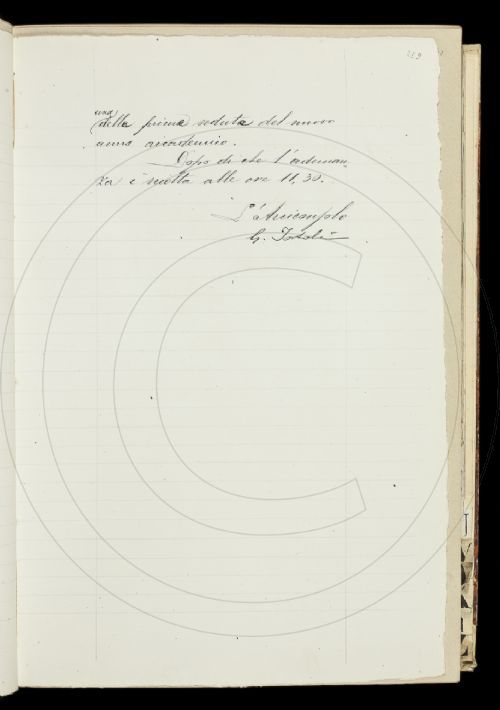 219
una
della prima seduta del nuovo
anno accademico.
Dopo di che l'adunan
za è sciolta alle ore 11,30.
G. Tortoli